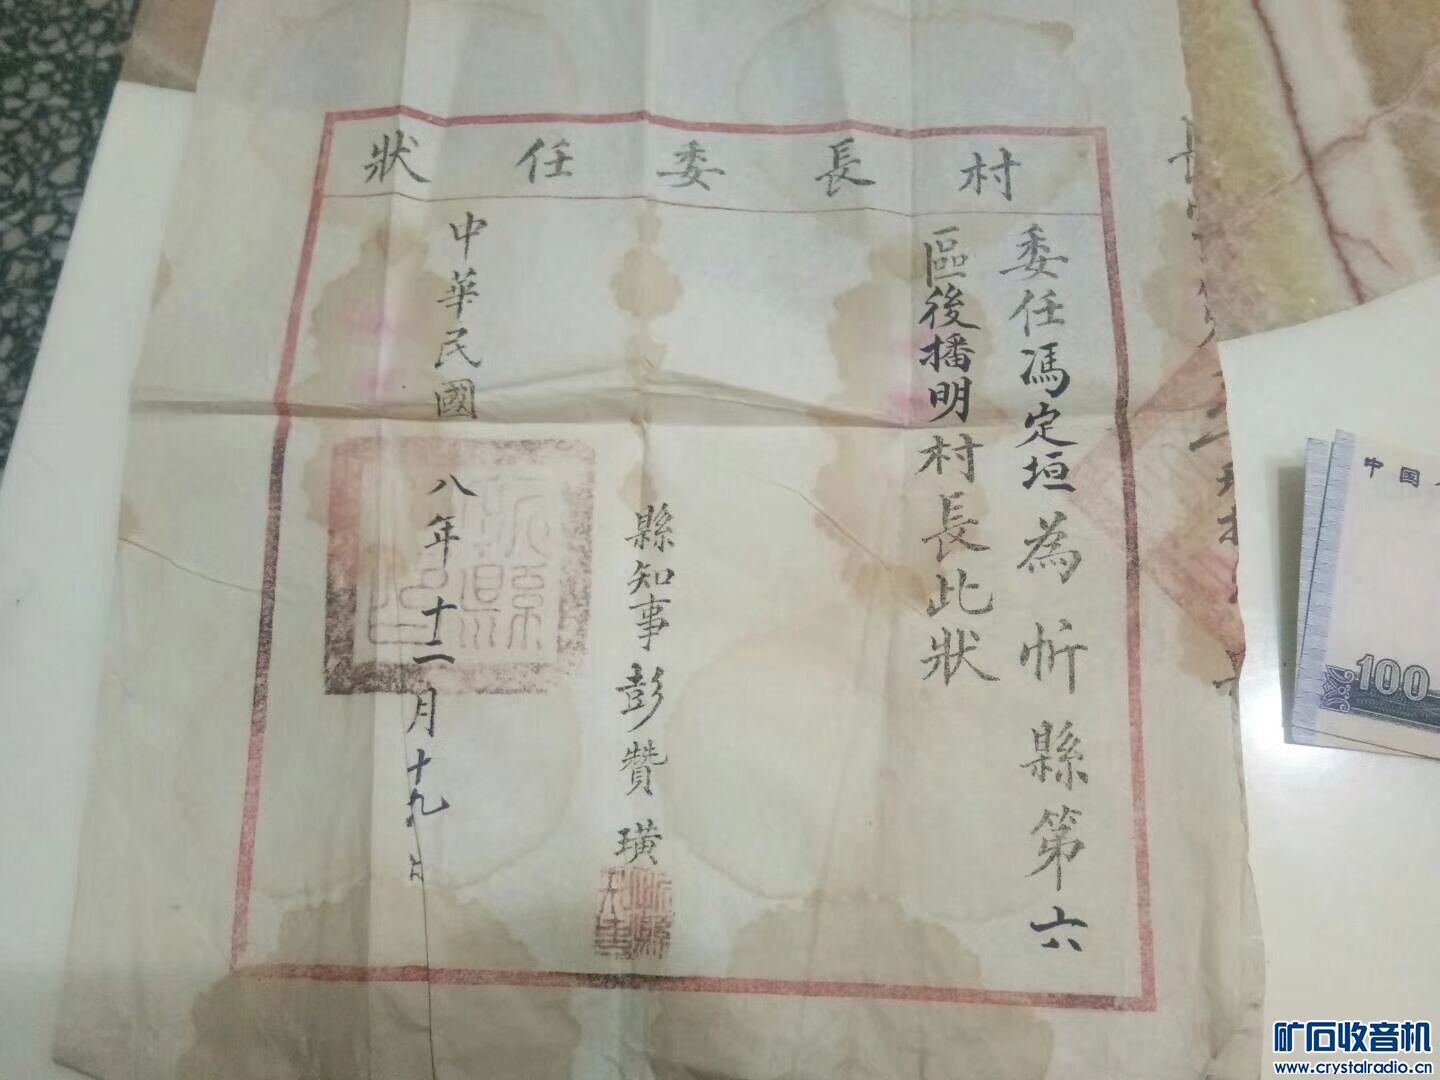 村長委任狀
委任馮定垣為忻縣第六
區後播明村長此狀
縣知事彭贊璜
忻縣知事
中華民國八年十二月十九日
忻縣之印
中国人
100
矿石收音机
www.crystalradio.cn